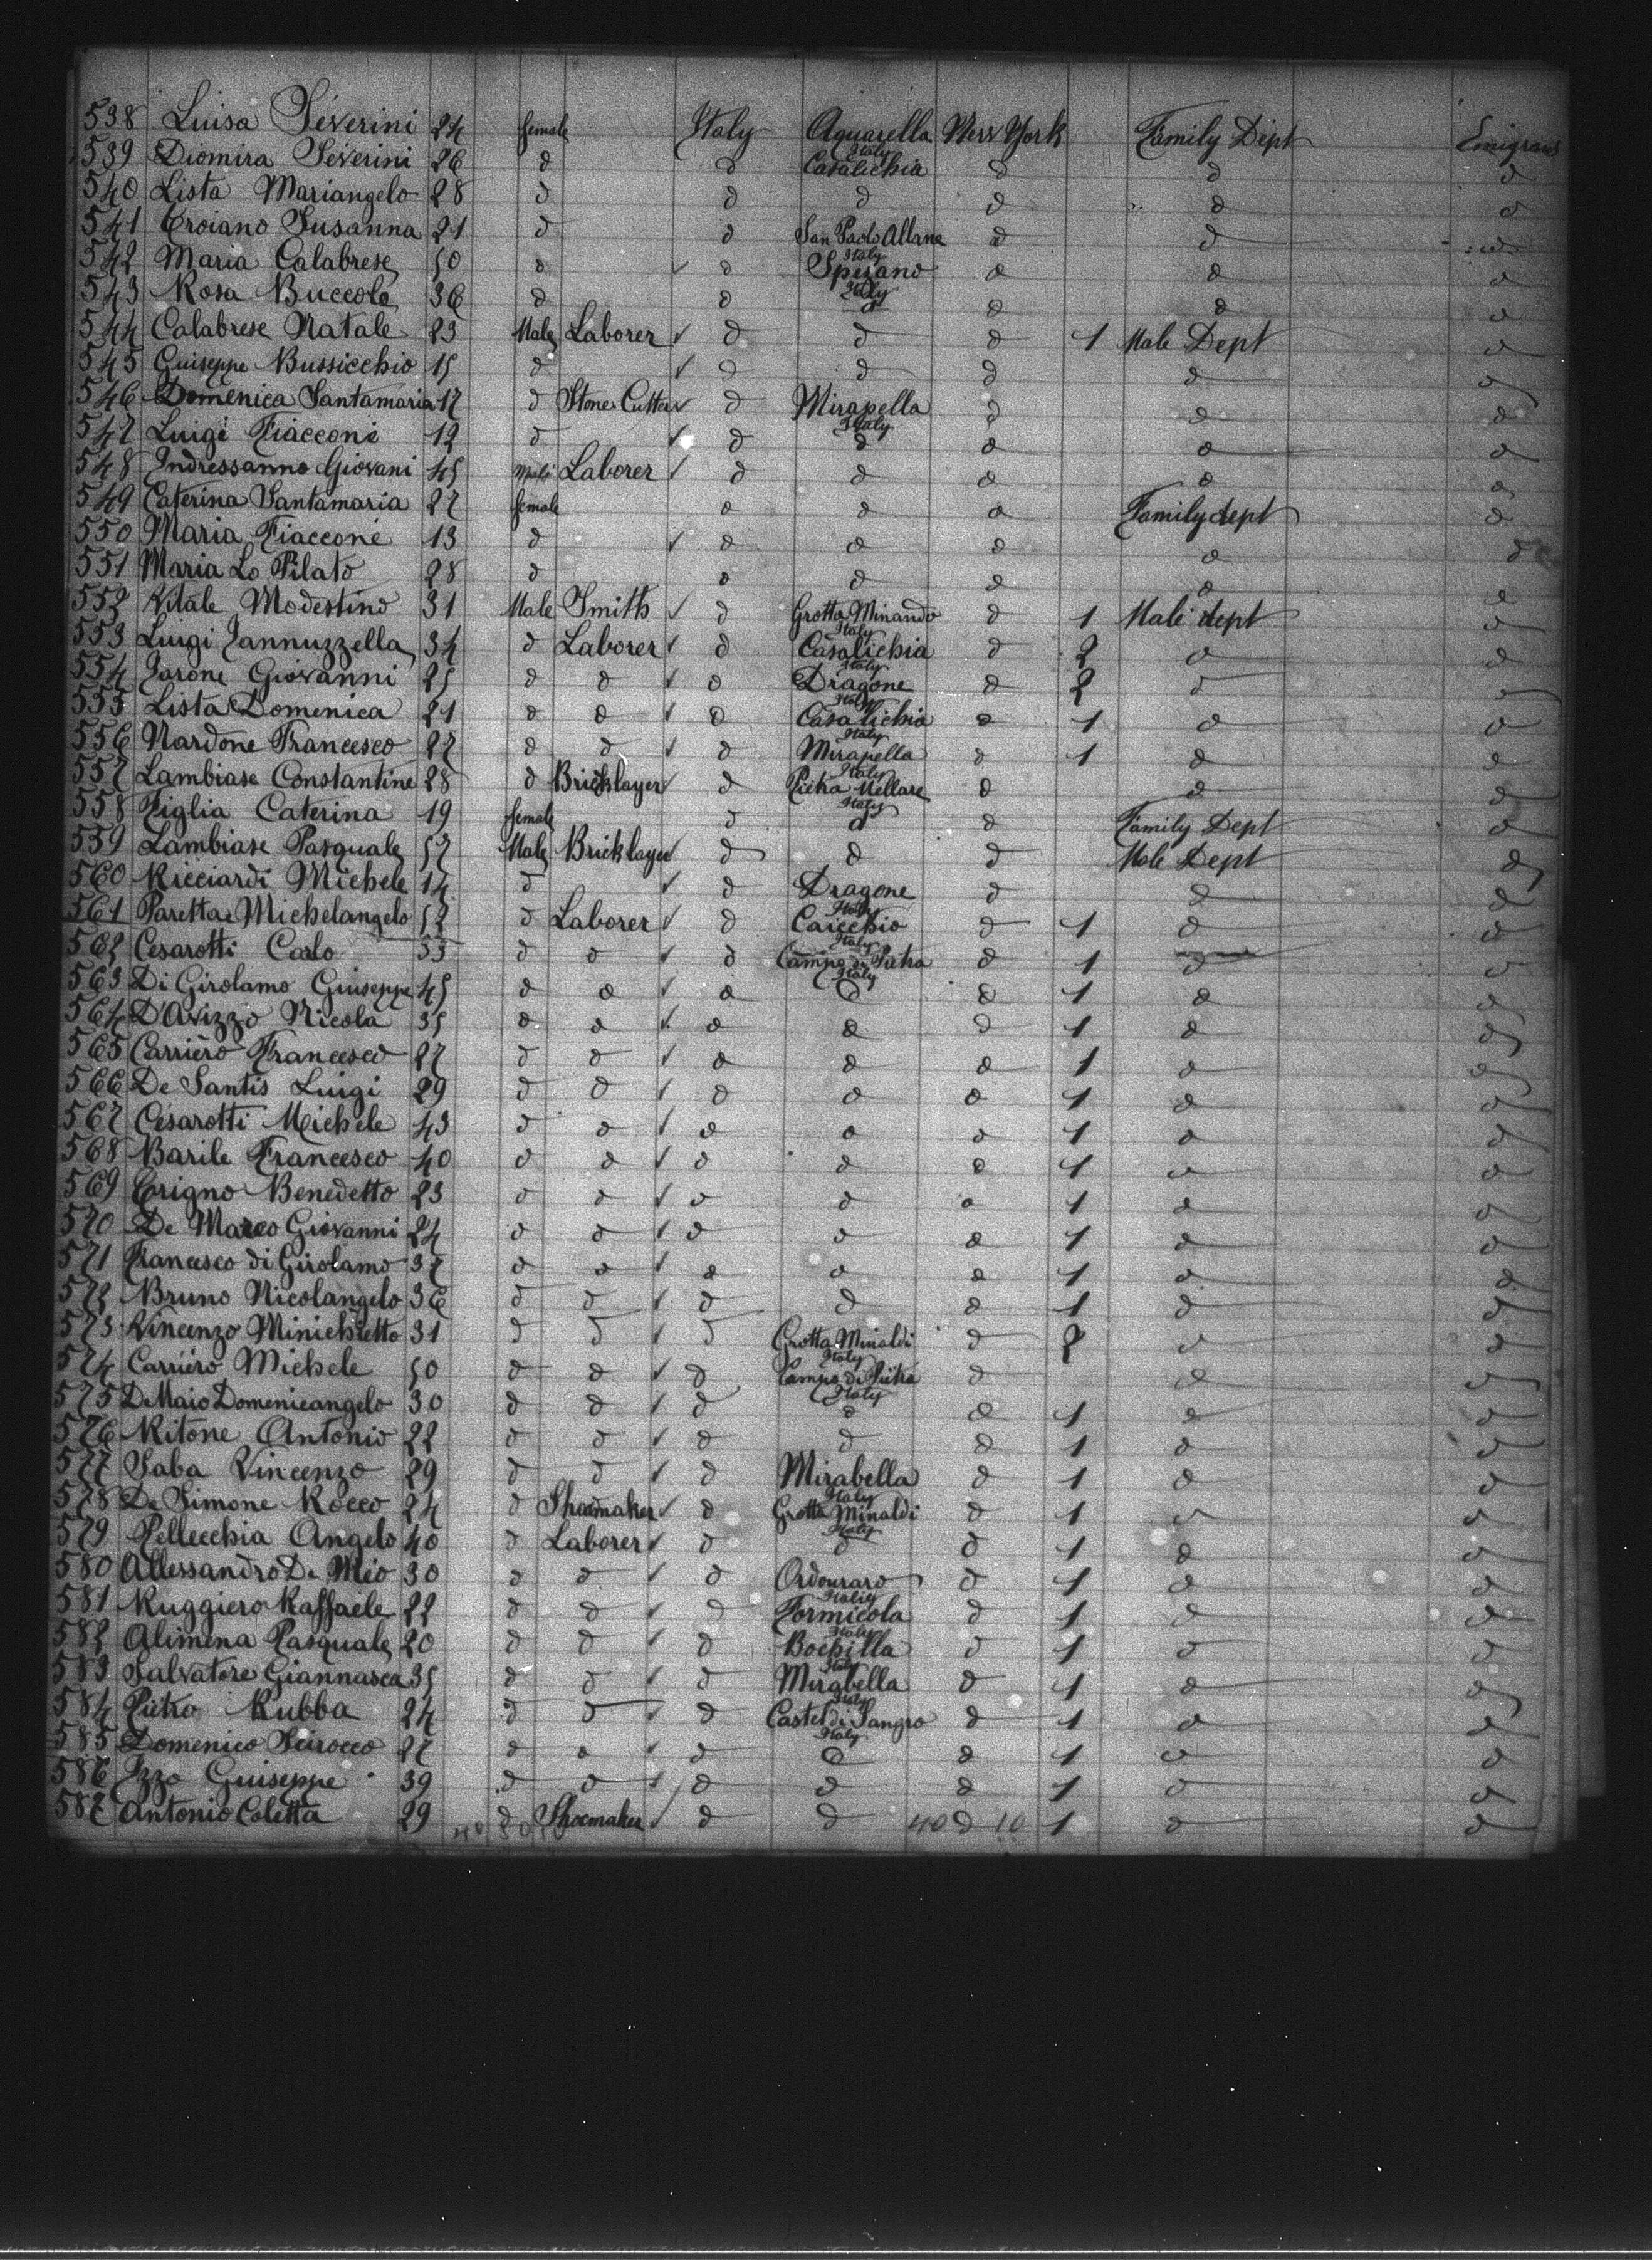 538 Luisa Severini 24 female Italy Aquarella Italy New York Family Dept Emigrant
539 Diomira Severini 26 d d Casalichia d d d
540 Lista Mariangelo 28 d d d d d d
541 Troiano Susanna 21 d d San Paolo Albane Italy d d d
542 Maria Calabrese 50 d ✓ d Spezano Italy d d d
543 Rosa Buccole 36 d d d d d d
544 Calabrese Natale 23 Male Laborer ✓ d d d 1 Male Dept d
545 Guiseppe Bussicchio 15 d ✓ d d d d d
546 Domenica Santamaria 17 d Stone Cutter ✓ d Mirapella Italy d d d
547 Luigi Fiacconi 12 d ✓ d d d d d
548 Indressanno Giovani 45 Male Laborer ✓ d d d d d
549 Caterina Santamaria 27 female d d d Family dept d
550 Maria Fiaccone 13 d ✓ d d d d d
551 Maria Lo Pilato 28 d d d d d d
552 Vitale Modestino 31 Male Smith ✓ d Grotta Minando Italy d 1 Male dept d
553 Luigi Iannuzzella 34 d Laborer ✓ d Casalichia Italy d 2 d d
554 Iarone Giovanni 25 d d ✓ d Dragone Italy d 2 d d
555 Lista Domenica 21 d d ✓ d Casalichia Italy d 1 d d
556 Nardone Francesco 27 d d ✓ d Mirapella Italy d 1 d d
557 Lambiase Constantine 28 d Bricklayer ✓ d Pietra Mellare Italy d d d
558 Figlia Caterina 19 female d d d Family Dept d
559 Lambiase Pasquale 57 Male Bricklayer ✓ d d d Male Dept d
560 Ricciardi Michele 14 d ✓ d Dragone Italy d d d
561 Paretta Michelangelo 52 d Laborer ✓ d Caicchio Italy d 1 d d
562 Cesarotti Carlo 33 d d ✓ d Campo di Pietra Italy d 1 d d
563 Di Girolamo Guiseppe 45 d d ✓ d d d 1 d d
564 D'Avizzo Nicola 35 d d ✓ d d d 1 d d
565 Carriero Francesco 27 d d ✓ d d d 1 d d
566 De Santis Luigi 29 d d ✓ d d d 1 d d
567 Cesarotti Michele 43 d d ✓ d d d 1 d d
568 Barile Francesco 40 d d ✓ d d d 1 d d
569 Corigno Benedetto 23 d d ✓ d d d 1 d d
570 De Marco Giovanni 24 d d ✓ d d d 1 d d
571 Francesco di Girolamo 37 d d ✓ d d d 1 d d
572 Bruno Nicolangelo 36 d d ✓ d d d 1 d d
573 Vincenzo Minichietto 31 d d ✓ d Grotta Minaldi Italy d 2 d d
574 Carriero Michele 50 d d ✓ d Campo di Pietra Italy d d d
575 De Maio Domenicangelo 30 d d ✓ d d d 1 d d
576 Ritone Antonio 22 d d ✓ d d d 1 d d
577 Saba Vincenzo 29 d d ✓ d Mirabella Italy d 1 d d
578 De Simone Rocco 24 d Shoemaker ✓ d Grotta Minaldi Italy d 1 d d
579 Pellecchia Angelo 40 d Laborer ✓ d d d 1 d d
580 Allessandro De Mio 30 d d ✓ d Ordouraro Italy d 1 d d
581 Ruggiero Raffaele 22 d d ✓ d Formicola Italy d 1 d d
582 Alimena Pasquale 20 d d ✓ d Bochilla Italy d 1 d d
583 Salvatore Giannasca 35 d d ✓ d Mirabella Italy d 1 d d
584 Pietro Rubba 24 d d d Castel di Sangro Italy d 1 d d
585 Domenico Scirocco 27 d d ✓ d d d 1 d d
586 Izzo Guiseppe 39 d d ✓ d d d 1 d d
587 Antonio Coletta 29 d Shoemaker ✓ d d 40 d 10 1 d d